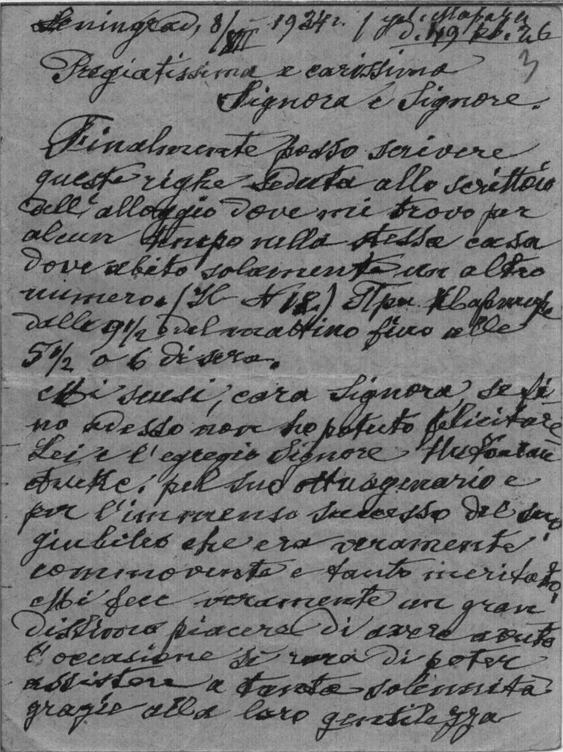 Leningrad, 8/VII 1924г. / ул. Марата
д. 49 кв. 26
3
Pregiatissima e carissima
Signora e Signore.
Finalmente posso scrivere
queste righe seduta allo scrittoio
dell'alloggio dove mi trovo per
alcun tempo nella stessa casa
dove abito solamente un altro
numero. (Il N 18.) При квартире
dalle 9 1/2 del mattino fino alle
5 1/2 o 6 di sera.
Mi scusi, cara Signora, se fi
no adesso non ho potuto felicitare
Lei e l'egregio Signore
per suo ottuagenario e
per l'immenso successo del suo
giubileo che era veramente
commovente e tanto meritato.
Mi fece veramente un gran
dissimo piacere di avere avuto
l'occasione si rara di poter
assistere a tanta solennità
grazie alla loro gentilezza